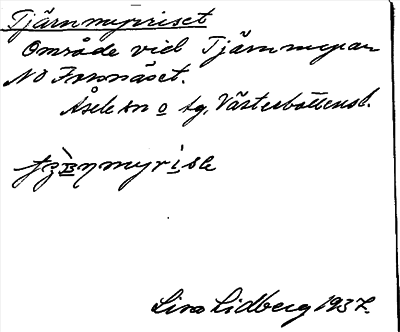 Tjärnmyriset
Område vid Tjärnmyran
NO Forsnäset.
Åsele sn o tg. Västerbottensl.
Lisa Lidberg 1937.